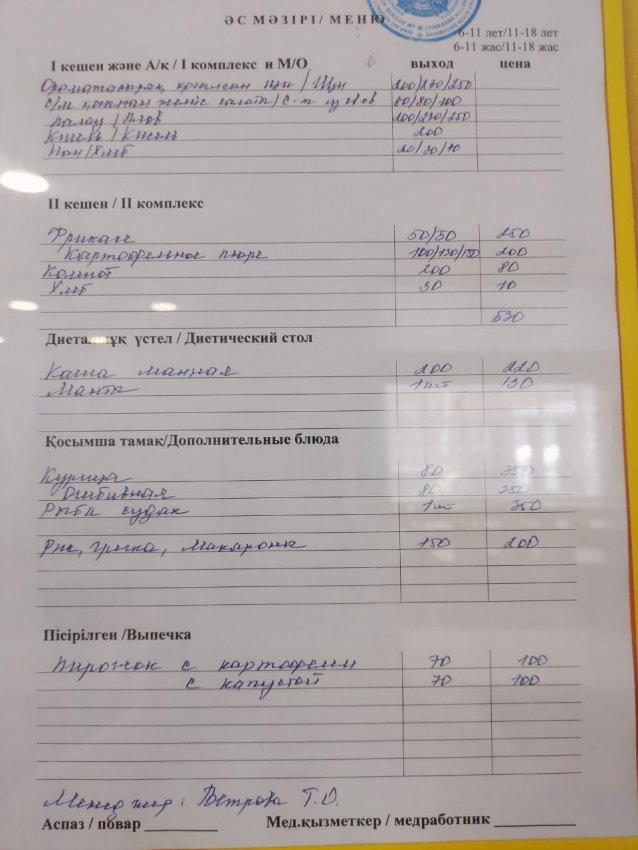 ӘС МӘЗІРІ/ МЕНЮ
6-11 лет/11-18 лет
6-11 жас/11-18 жас
І кешен және А/к / І комплекс и М/О выход цена
200/230/250
60/80/100
Палау / Плов 200/230/250
Кисель / Кисель 200
Нан/Хлеб 20/30/40
ІІ кешен / ІІ комплекс
Фрикасе 50/50 250
Картофельное пюре 100/130/150 200
Компот 200 80
Хлеб 30 10
530
үстел / Диетический стол
Каша манная 200 220
Манты 1 шт 130
Қосымша тамақ/Дополнительные блюда
Курица 80 350
Отбивная 80 350
Рыба судак 1 шт 350
Рис, гречка, Макароны 150 200
Пісірілген /Выпечка
Пирожок с картофелем 70 100
с капустой 70 100
Менеджер: Ветрова Т.О.
Аспаз / повар Мед.қызметкер / медработник